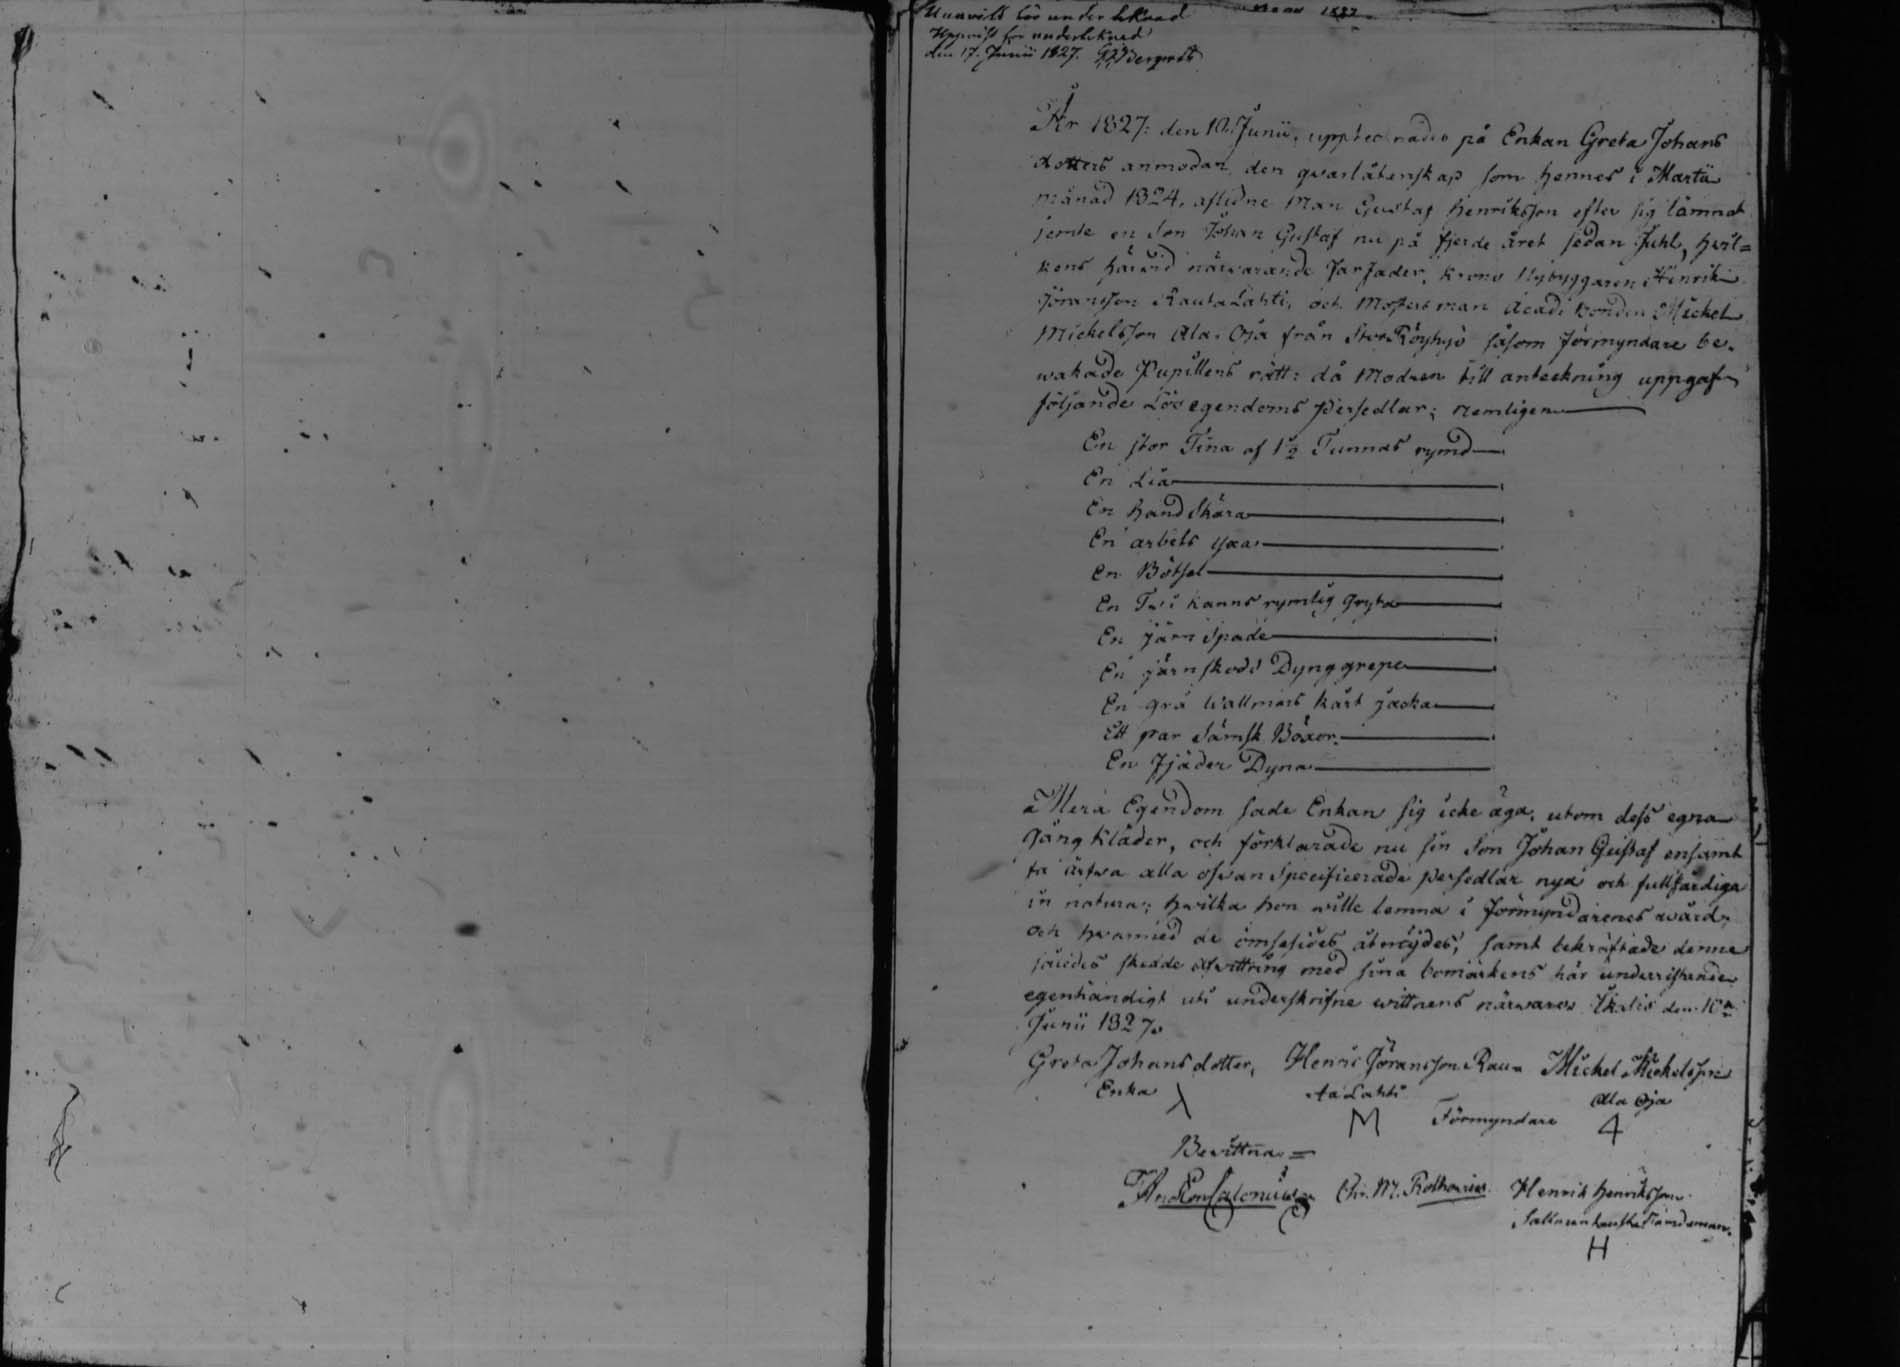 Uppvist för undertecknad
den 17. Junii 1827.
År 1827: den 10. Junii, upptecknades på Enkan Greta Johans
dotters anmodan, den qvarlåtenskap som hennes i Martii
månad 1824, aflidne Man Gustaf Henriksson efter sig lämnat
jemte en Son Johan Gustaf nu på fjerde året sedan Juhl, hvil=
kens härvid närvarande Farfader, Krono Nybyggaren Henrik
Jöransson Rautalahti, och Mosters man Acad: bonden Mickel
Mickelsson Ala-Oja från Stor Röyhyö såsom förmyndare be-
wakade Pupillens rätt: då Modren till anteckning uppgaf
följande Lösegendoms Persedlar; nemligen
En stor Tina af 1½ Tunnas rymd
En Lia
En hand Skära
En arbets yxa
En Bötsel
En Två kanns rymlig Gryta
En Järn Spade
En järnskodd Dynggrepe
En grå Wallmars kårt jacka
Ett par Sämsk Böxor
En Fjäder Dyna
Mera Egendom sade Enkan sig icke äga, utom dess egna
Gång Kläder, och förklarade nu sin Son Johan Gustaf ensamt
få ärfwa alla ofwan Specificerade Persedlar nya och fullfärdiga
in natura; hwilka hon wille lemna i förmyndarenes wård,
och hwarmed de ömsesides åtnöjdes, samt bekräftade denne
således skedde afwittring med sina bomärkens här underristande
egenhändigt uti underskrifne wittnens närwaro. Ikalis den 10de
Junii 1827.
Greta Johansdotter, Henric Jöransson Rau= Mickel Mickelsson
Enka ta Lahti Ala Oja
Förmyndare
Bewittna =
Chr. M. Rothovius Henrik Henriksson
Nämdeman.
H